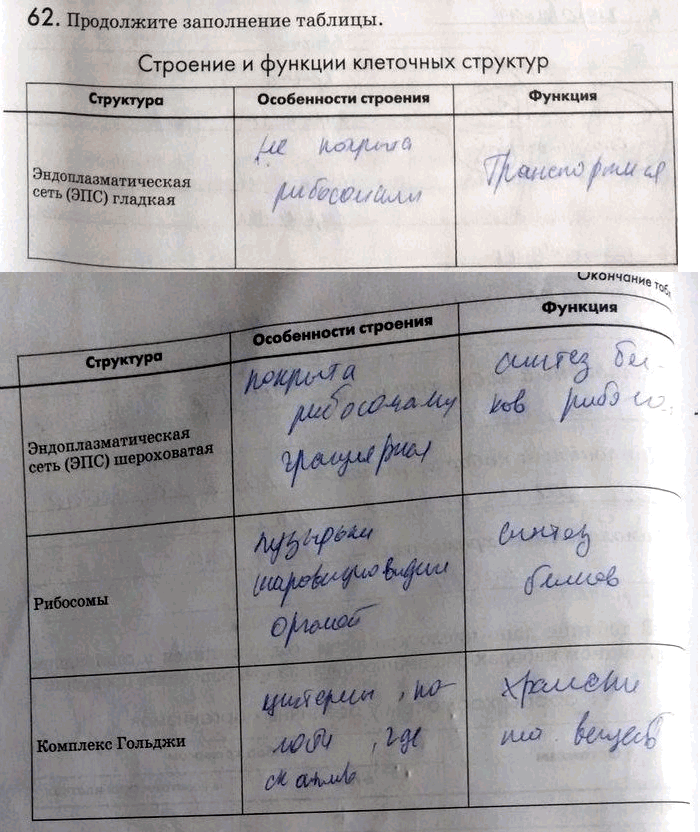 62. Продолжите заполнение таблицы.
Строение и функции клеточных структур
Структура Особенности строения Функция
Эндоплазматическая
сеть (ЭПС) гладкая
не покрыта
рибосомами
Транспортная
Окончание
Структура Особенности строения Функция
Эндоплазматическая
сеть (ЭПС) шероховатая
покрыта
рибосомами
гранулярная
синтез бел-
ков
Рибосомы
пузырьки
синтез
белков
Комплекс Гольджи
цистерны, по-
лости, где
хранение
веществ